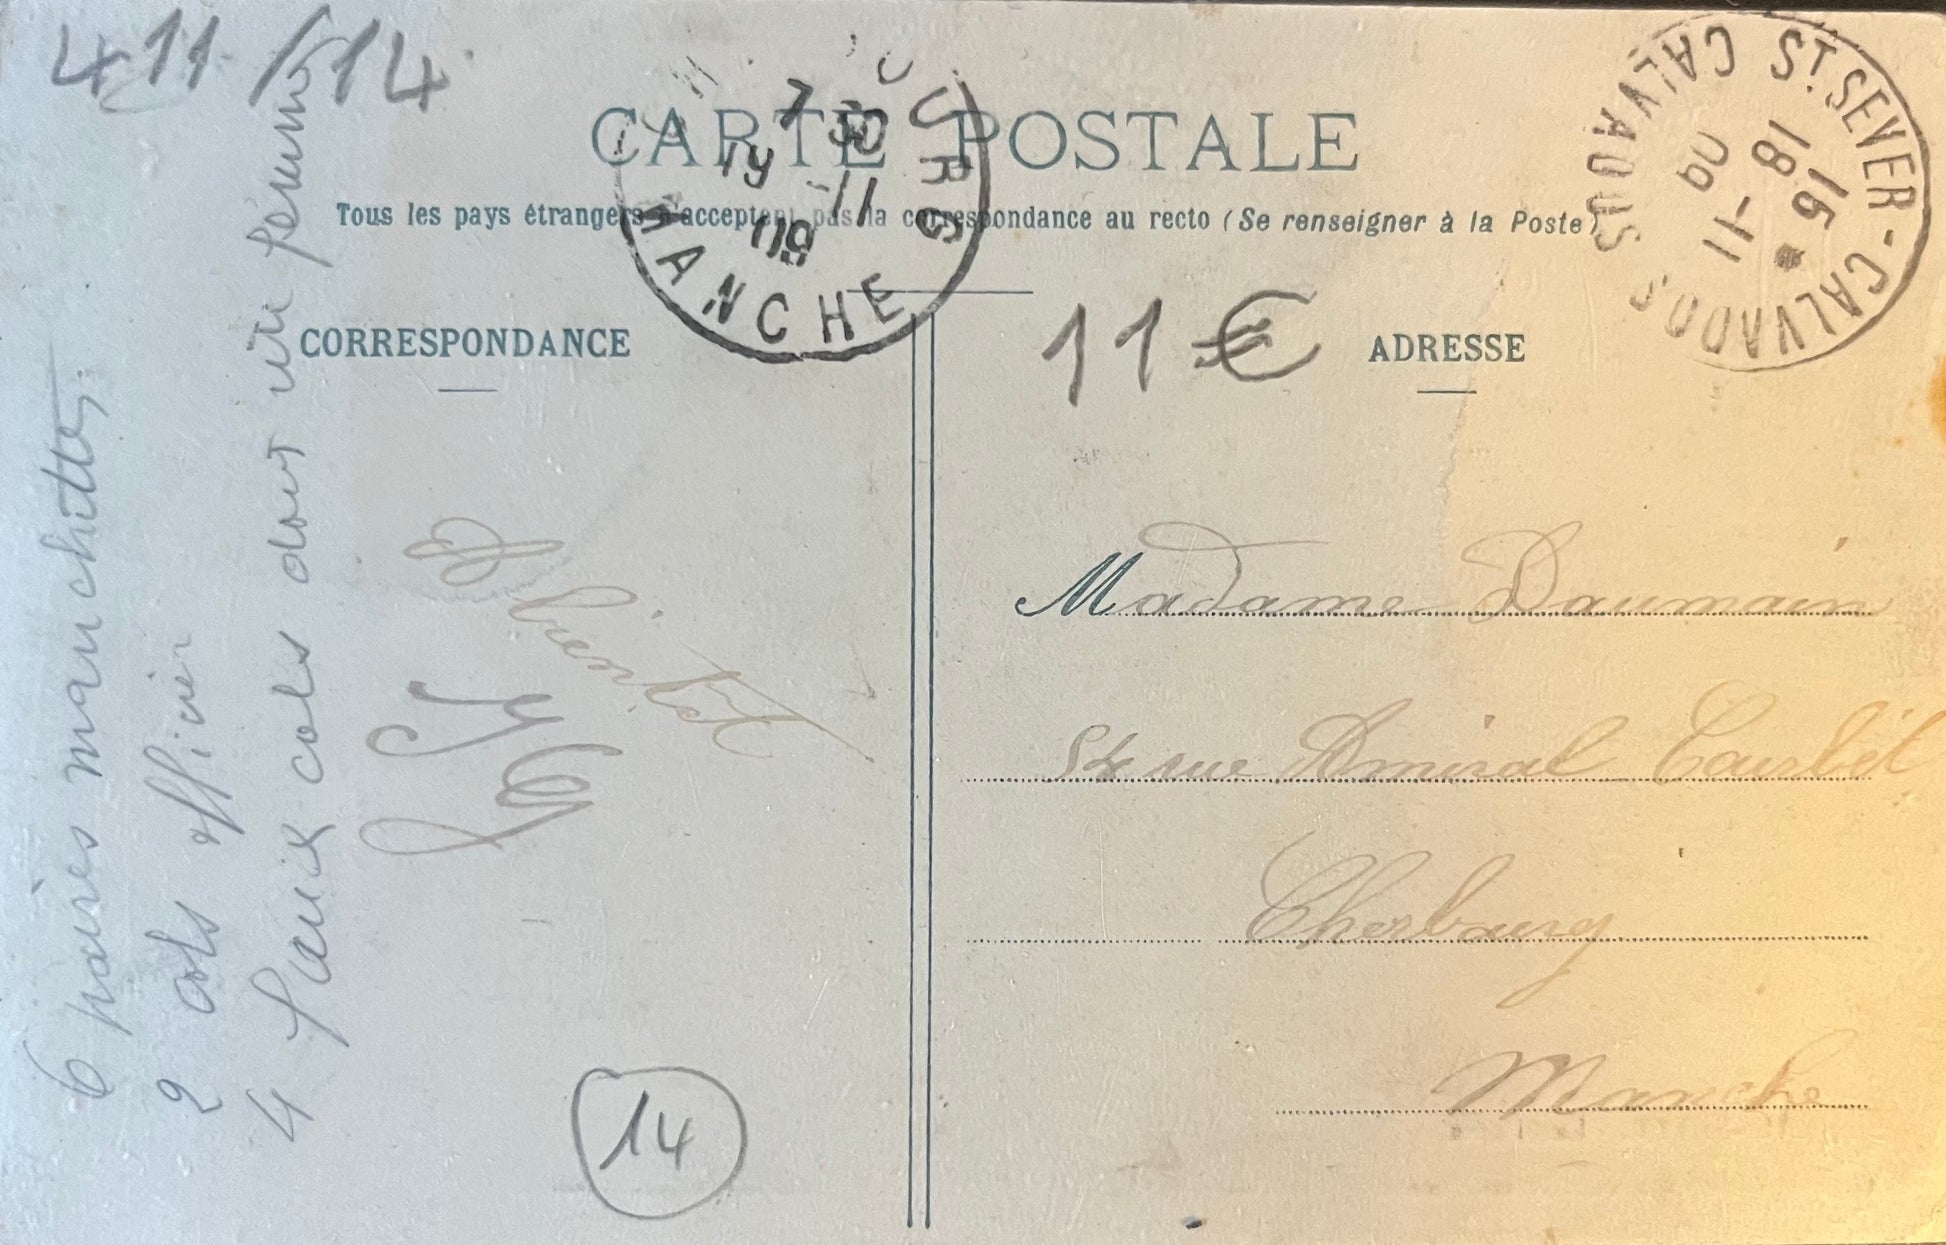 411 / 14
CARTE POSTALE
Tous les pays étrangers n'acceptent pas la correspondance au recto (Se renseigner à la Poste)
CORRESPONDANCE
ADRESSE
11 €
MANCHE
7 30
19 -11
09
ST. SEVER - CALVADOS
CALVADOS
15 *
18 -11
09
6 paires manchettes
2 cols officier
4 faux cols dont un
A bientot
Madame Daumain
54 rue Amiral Courbét
Cherbourg
Manche
14